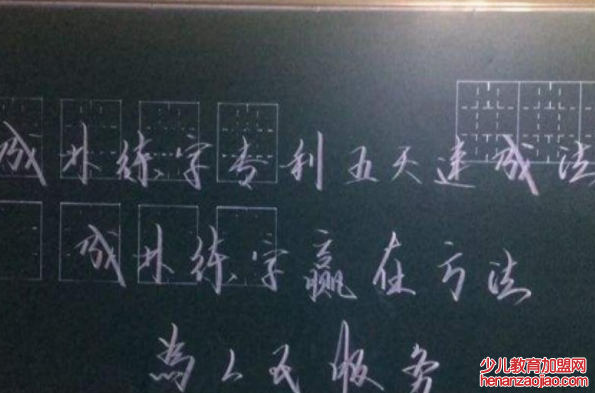 成外练字专利五天速成法
成外练字赢在方法
為人民服务
少儿教育加盟网
henanzaojiao.com